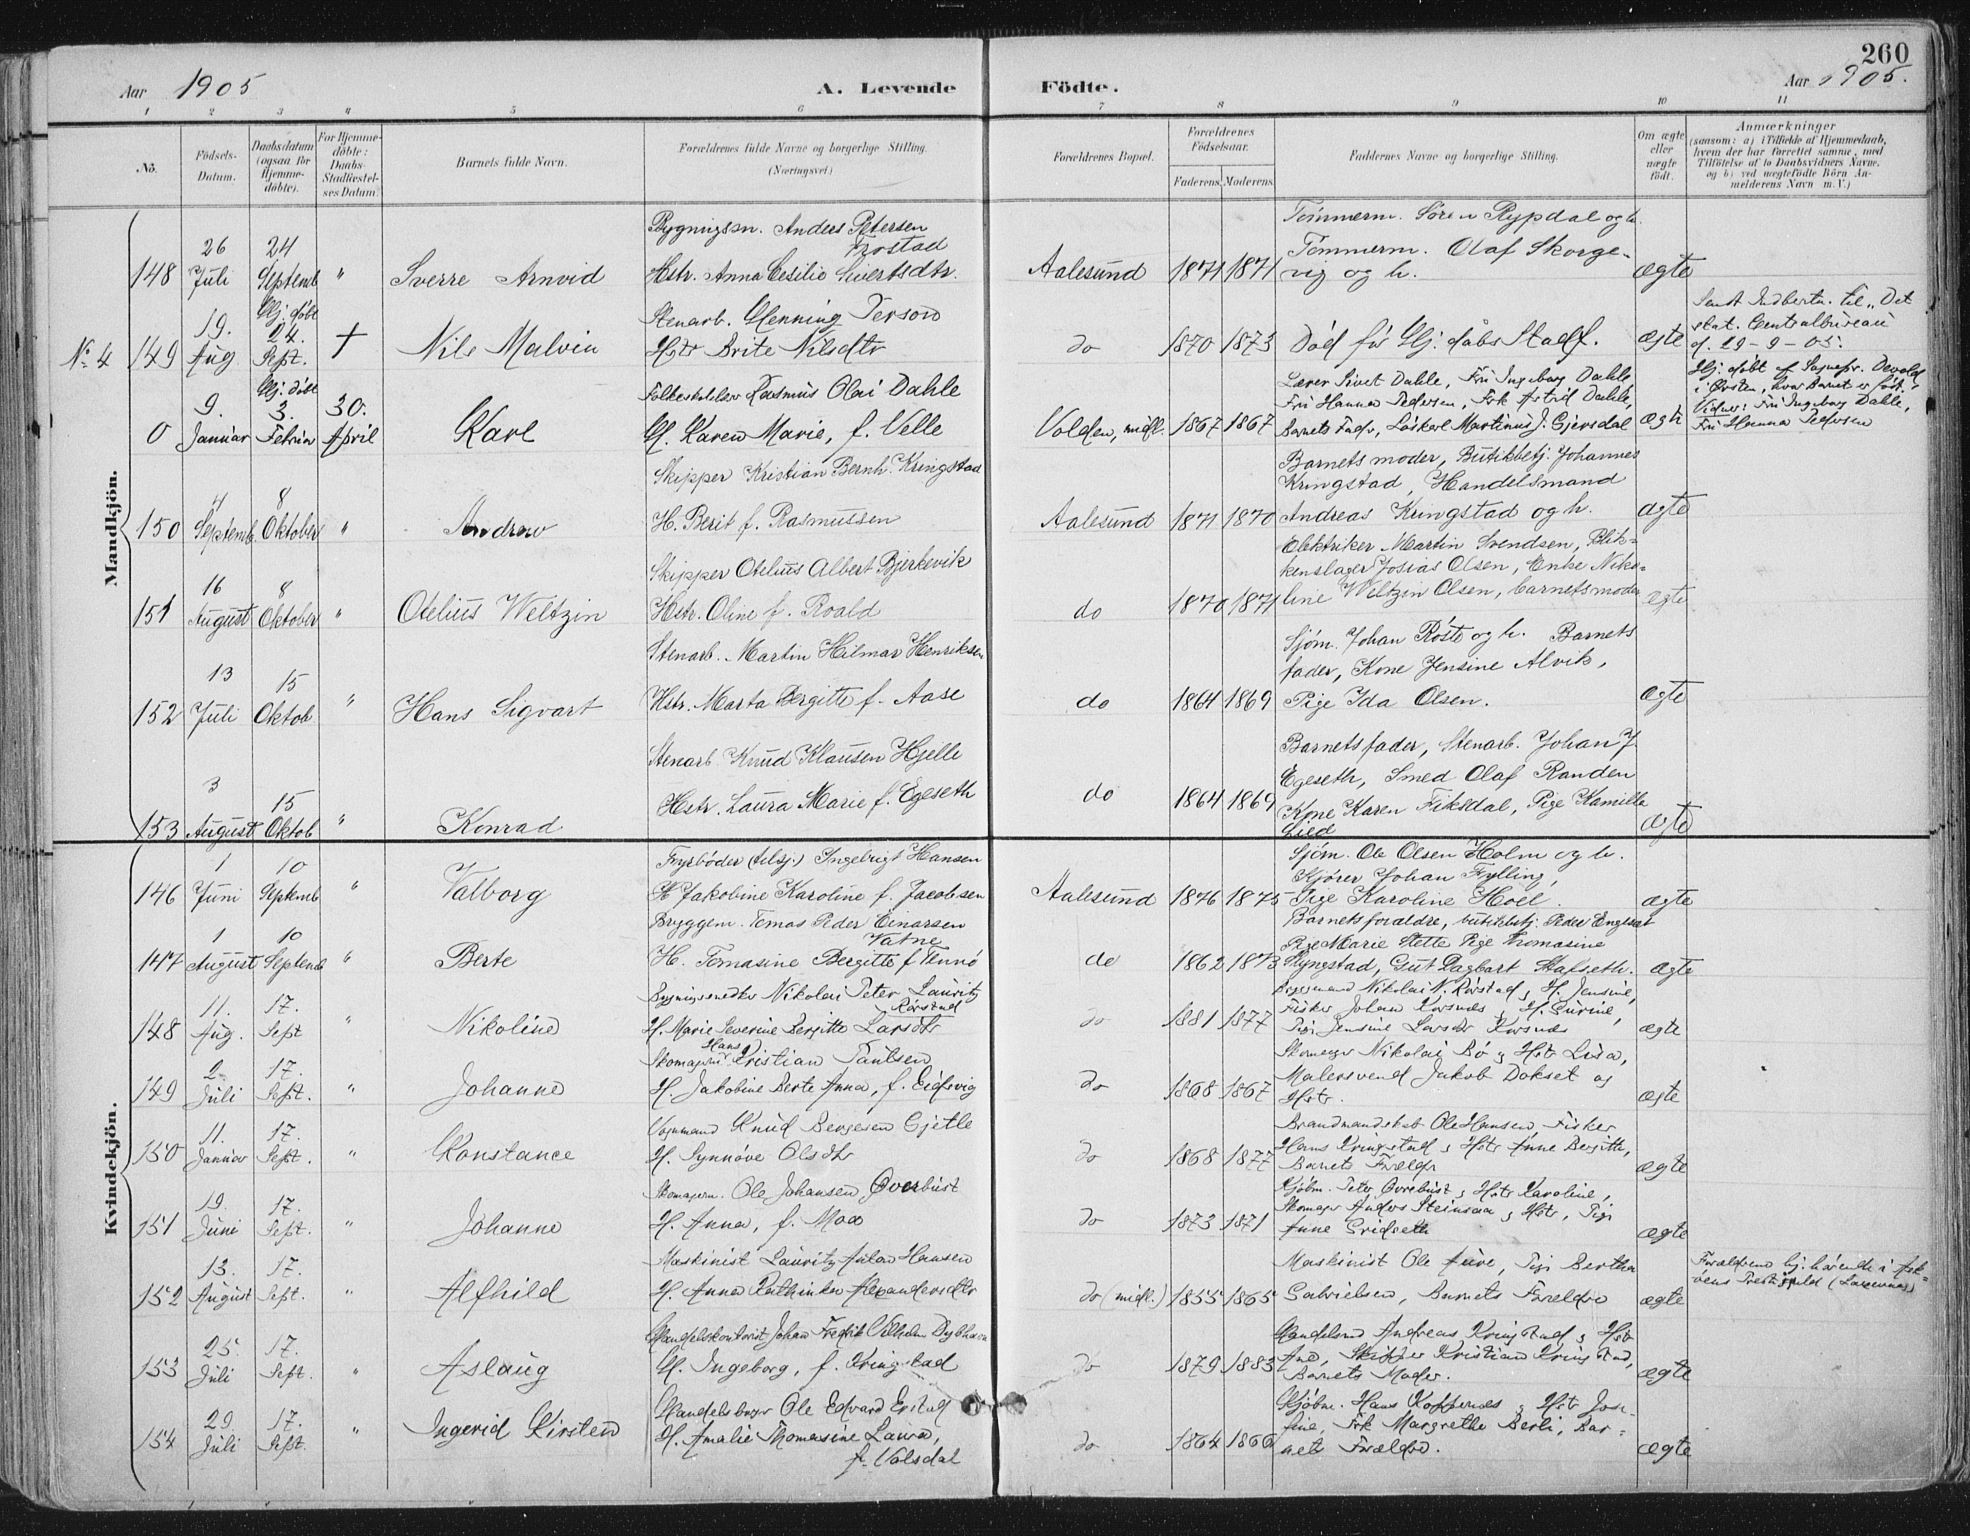 260
Aar 1905
A. Levende
Födte.
Aar 1905.
1 2 3 4 5 6 7 8 9 10 11
No.
Födsels-Datum.
Daabsdatum (ogsaa for Hjemme-döbte).
For Hjemme-döbte: Daabs-Stadfæstel-ses Datum.
Barnets fulde Navn.
Forældrenes fulde Navne og borgerlige Stilling. (Næringsvei)
Forældrenes Bopæl.
Forældrenes Födselsaar.
Faderens. Moderens.
Faddernes Navne og borgerlige Stilling.
Om ægte eller uægte födt.
Anmærkninger
(saasom: a) i Tilfælde af Hjemmedaab, hvem der har forrettet samme, med Tilföielse af to Daabsvidners Navne, og b) ved uægtefödte Börn An-melderens Navn m. V.)
Mandkjön.
148 26 Juli 24 Septemb " Sverre Arnvid
Bygningssn. Anders Petersen
Frostad
Hstr. Anna Cesilie Sivertsdtr.
Aalesund 1871 1871
Tømmerm. Søren Rypdal og h.
Tømmerm. Olaf Skorge-
vig og h.
ægte
No. 4 149 19. Aug Hj. døbt 24. Sept. + Nils Malvin
Stenarb. Henning Person
Hstr Brite Nilsdtr
do 1870 1873
Død før Hj. dåbs Stadf.
ægte
Sendt Indbertn. til "Det
stat. Centralbureau
d. 29-9-05.
0 9. Januar Hj. døbt 3. Februar 30. April Karl
Folkeskolelær Rasmus Olai Dahle
H. Karen Marie, f. Velle
Volden, midl. 1867 1867
Lærer Sivert Dahle, Fru Ingeborg Dahle
Fru Hanna Pedersen, Frk Astrid Dahle,
Barnets Fader, Løskarl Martinus J. Gjersdal
ægte
Hj. døbt af Sognepr. Devold
i Ørsten, hvor Barnet er født.
Vidner: Fru Ingeborg Dahle,
Fru Hanna Pedersen
150 4 Septemb. 8 Oktober " Andrew
Skipper Kristian Bernh. Kringstad
H. Berit f. Rasmussen
Aalesund 1871 1870
Barnets moder, Butikbetj. Johannes
Kringstad, Handelsmand
Andreas Kringstad og h.
ægte
151 16 August 8 Oktober " Otelius Weltzin
Skipper Otelius Albert Bjerkevik
Hstr. Oline f. Roald
do 1870 1871
Elektriker Martin Svendsen, Blik-
kenslager Josias Olsen, Enke Niko-
line Weltzin Olsen, barnets moder
ægte
152 13 Juli 15 Oktob " Hans Sigvart
Stenarb. Martin Hilmar Henriksen
Hstr. Marta Bergitte f. Aase
do 1864 1869
Sjøm. Johan Røste og h. Barnets
fader, Kone Jensine Alvik,
Pige Ida Olsen.
ægte
153 3 August 15 Oktob " Konrad
Stenarb. Knud Klausen Hjelle
Hstr. Laura Marie f. Egeseth
do 1864 1869
Barnets fader, Stenarb. Johan J.
Egeseth, Smed Olaf Randen
Kone Karen Fiksdal, Pige Kamilla
Lied
ægte
Kvindekjön.
146 1 Juni 10 Septemb " Valborg
Fyrbøder Ingebrigt Hansen
H Jakobine Karoline f. Jacobsen
Aalesund 1876 1875
Sjøm. Ole Olsen Holm og h.
Kjører Johan Fylling,
Pige Karoline Hoel.
ægte
147 1 August 10 Septemb " Berte
Bryggem. Tomas Peder Einarsen
Vatne
H. Tomasine Bergitte f Tennø
do 1862 1873
Barnets forældre, butikbetj. Peder Engeset
Pige Marie Slette Pige Thomasine
Ryngstad, Gut Dagbart Hafseth.
ægte
148 11. Aug. 17. Sept " Nikoline
Bygningssnedker Nikolai Peter Lauritz
Rørstad
H. Marie Severine Bergitte Larsdtr
do 1881 1877
Nikolai N. Rørstad, H. Jensine,
Fisker Johan Korsnæs, H. Gurine,
Pige Jensine Larsdtr Korsnæs
ægte
149 2 Juli 17. Sept. " Johanne
Hans
Skomagerm Kristian Paulsen
H. Jakobine Berte Anna, f. Eidsvig
do 1868 1867
Skomager Nikolai Bø, Hstr Lisa,
Malersvend Jakob Dokset og
Hstr.
ægte
150 11. Januar 17. Sept. " Konstance
Vognmand Knud Bergesen Gjetle
H. Synnøve Olsdtr
do 1868 1877
Brandmandskab Ole Hansen, Fisker
Hans Kringstad, Hstr Anne Bergitte,
Barnets Forældr
ægte
151 19. Juni 17. Sept. " Johanne
Skomagerm. Ole Johansen Øverbust
H. Anna, f. Moa
do 1873 1871
Kjøbm. Peter Øvrebust, Hstr Karoline,
Skomager Anders Steinsaa, Hstr, Pige
Anne Gridseth
ægte
152 13. August 17. Sept. " Alfhild
Maskinist Lauritz Anton Hansen
H. Anna Kathinka Alexandersdtr
do (midl.) 1855 1865
Maskinist Ole Aure, Pige Berthe
Gabrielsen, Barnets Forældre
ægte
Forældrene hj. hørende i Ask-
Prestegjeld
153 25. Juli 17. Sept. " Aslaug
Handelskontorist Johan Fredrik Vilhelm
H. Ingeborg, f. Kringstad
do 1879 1883
Handelsmd Andreas Kringstad, Hstr
Ane, Skipper Kristian Kringstad,
Barnets Moder.
ægte
154 29. Juli 17. Sept. " Ingerid Kirsten
Handelsborger Ole Edvard
H. Amalie Thomasine Laura,
f. Volsdal
do 1864 1866
Kjøbm. Hans Koppernæs, Hstr Jose-
fine, Frk Margrethe Berli, Bar-
nets Forældre.
ægte